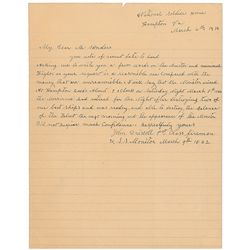 National Soldier Home
Hampton Va
March 6th 19
My Dear Mr.
your note of recent date to hand
Asking me to write you a few words on the Monitor and Merrimac
Fight as your request is a reasonable one compared with the
many that are unreasonable I will say that the Monitor arrived
At Hampton Roads about 8 oclock on Saturday night March 8th
the Merrimac had retired for the night after destroying two of
our best ships and was ready and able to destroy the balance
of the Fleet the next morning and the appearance of the Monitor
Did not inspire much Confidence. Respectfully yours
John Driscoll 1st Class Fireman
U.S.S. Monitor March 9th 1862